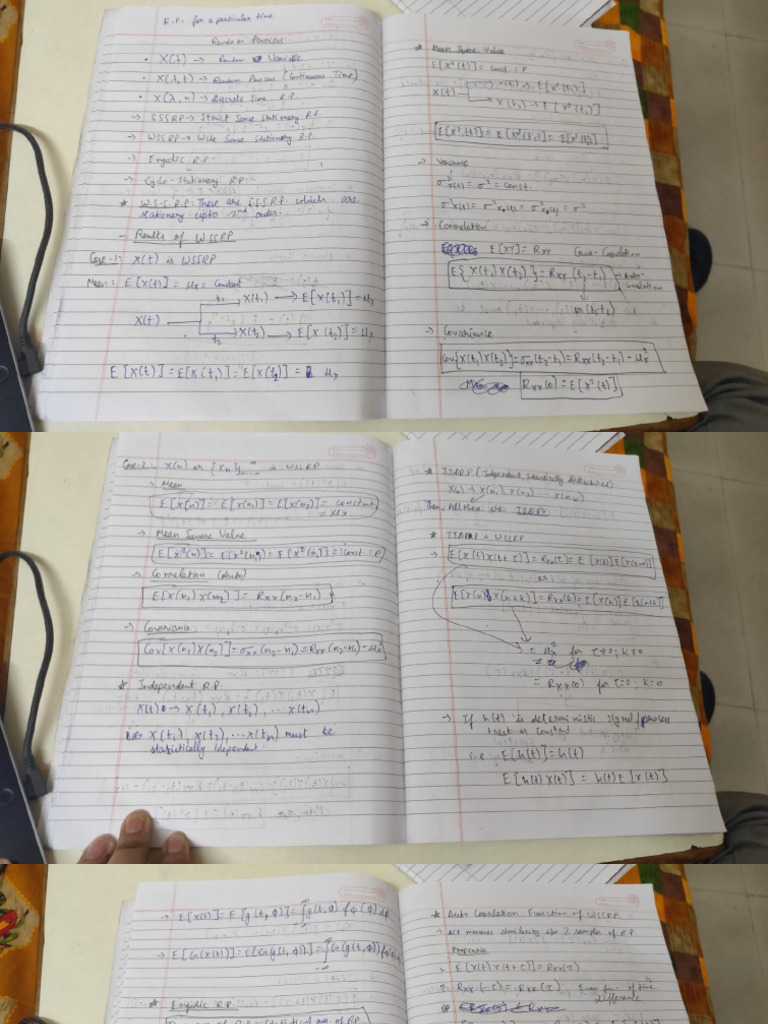 R.P. for a particular time
Random Process
• X(t) → Random Variable
• X(λ, t) → Random Process (Continuous Time)
• X(λ, n) → Discrete Time R.P
→ SSSRP → Strict Sense Stationary R.P
→ WSSRP → Wide Sense Stationary R.P.
→ Ergodic R.P.
→ Cyclo-Stationary R.P.
* W.S.S.R.P: These are S.S.S.R.P. which are
stationary upto 2nd order.
- Results of WSSRP
Case-1: X(t) is WSSRP
Mean: E[X(t)] = μx = Constant
t₁ X(t₁) → E[X(t₁)] = μx
X(t)
t₂ X(t₂) → E[X(t₂)] = μx
E[X(t)] = E[X(t₁)] = E[X(t₂)] = μx
* Mean Square Value
E[X²(t)] = const = P
X(t₁) → E[X²(t₁)]
X(t)
X(t₂) → E[X²(t₂)]
E[X²(t)] = E[X²(t₁)] = E[X²(t₂)]
→ Variance
σ²x(t) = σ² = const.
→ Correlation
E[XY] = Rxy Cross-Correlation
E{X(t₁)X(t₂)} = Rxx(t₂-t₁) → Auto-
correlation
→ Covariance
Cov{X(t₁)X(t₂)} = σxx(t₂-t₁) = Rxx(t₂-t₁) - μx²
Rxx(0) = E[X²(t)]
Case-2: X(n) or is WSSRP
→ Mean
E[X(n)] = E[X(n₁)] = E[X(n₂)] = constant
= μx
→ Mean Square Value
E[X²(n)] = E[X²(n₁)] = E[X²(n₂)] = Const = P
→ Correlation (Auto)
E[X(n₁)X(n₂)] = Rxx(n₂-n₁)
→ Covariance
Cov[X(n₁)X(n₂)] = σxx(n₂-n₁) = Rxx(n₂-n₁) - μx²
* Independent R.P.
X(t) → X(t₁), X(t₂), ... X(tn)
X(t₁), X(t₂), ... X(tn) must be
statistically idependent
* IIDRP (Independent, Identically distributed)
X(n) → X(n₁), X(n₂) ...
Then, All these are IIDRV
* IIDRP + WSSRP
→ E[X(t)X(t+τ)] = Rxx(τ) = E[X(t)]E[X(t+τ)]
or
E[X(n)X(n+k)] = Rxx(k) = E[X(n)]E[X(n+k)]
= μx² for τ≠0; k≠0
= Rxx(0) for τ=0; k=0
→ If h(t) is deterministic signal/process
treat as constant
i.e E[h(t)] = h(t)
E[h(t)X(t)] = h(t)E[X(t)]
→ E[X(t)] = E{g(t,φ)} = ∫g(t,φ) fφ(φ)dφ
→ E[G(X(t))] = E[G(g(t,φ))] = ∫G(g(t,φ))
* Ergodic R.P.
* Auto Correlation Function of WSSRP
→ ACF measures similarity b/w 2 samples of R.P
Properties
1. E[X(t)X(t+τ)] = Rxx(τ)
2. Rxx(-τ) = Rxx(τ) Even fun. of time
difference